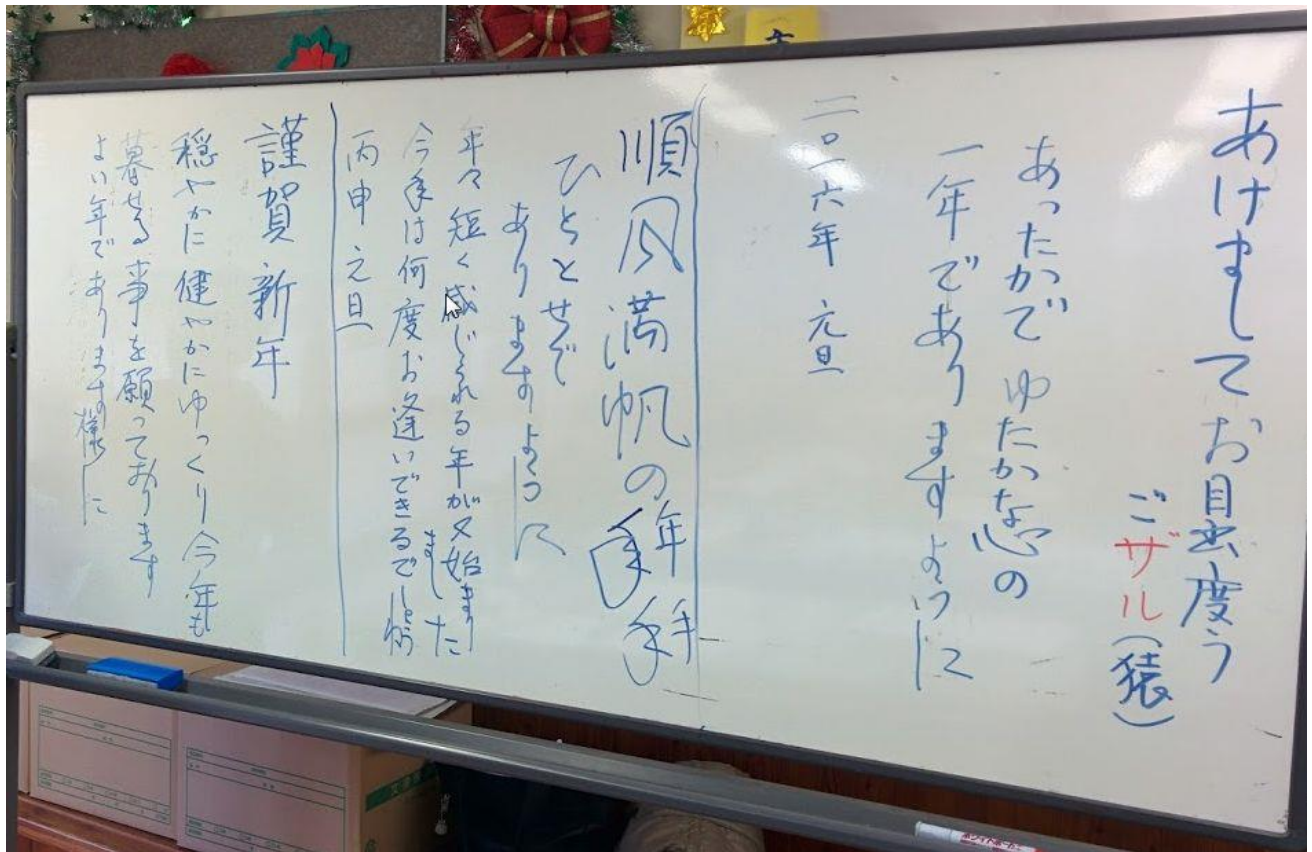 あけましてお目出度う
ござザル(猿)
あったかで ゆたかな心の
一年であり ますように
二〇一六年 元旦
順風満帆の年
ひととせで
ありますように
年々 短く 感じられる年が又始まり
ました
今年は何度お逢いできるでしょうか
丙申 元旦
謹賀新年
穏やかに 健やかに ゆっくり 今年も
暮せる事を願っております
よい年でありますの様に